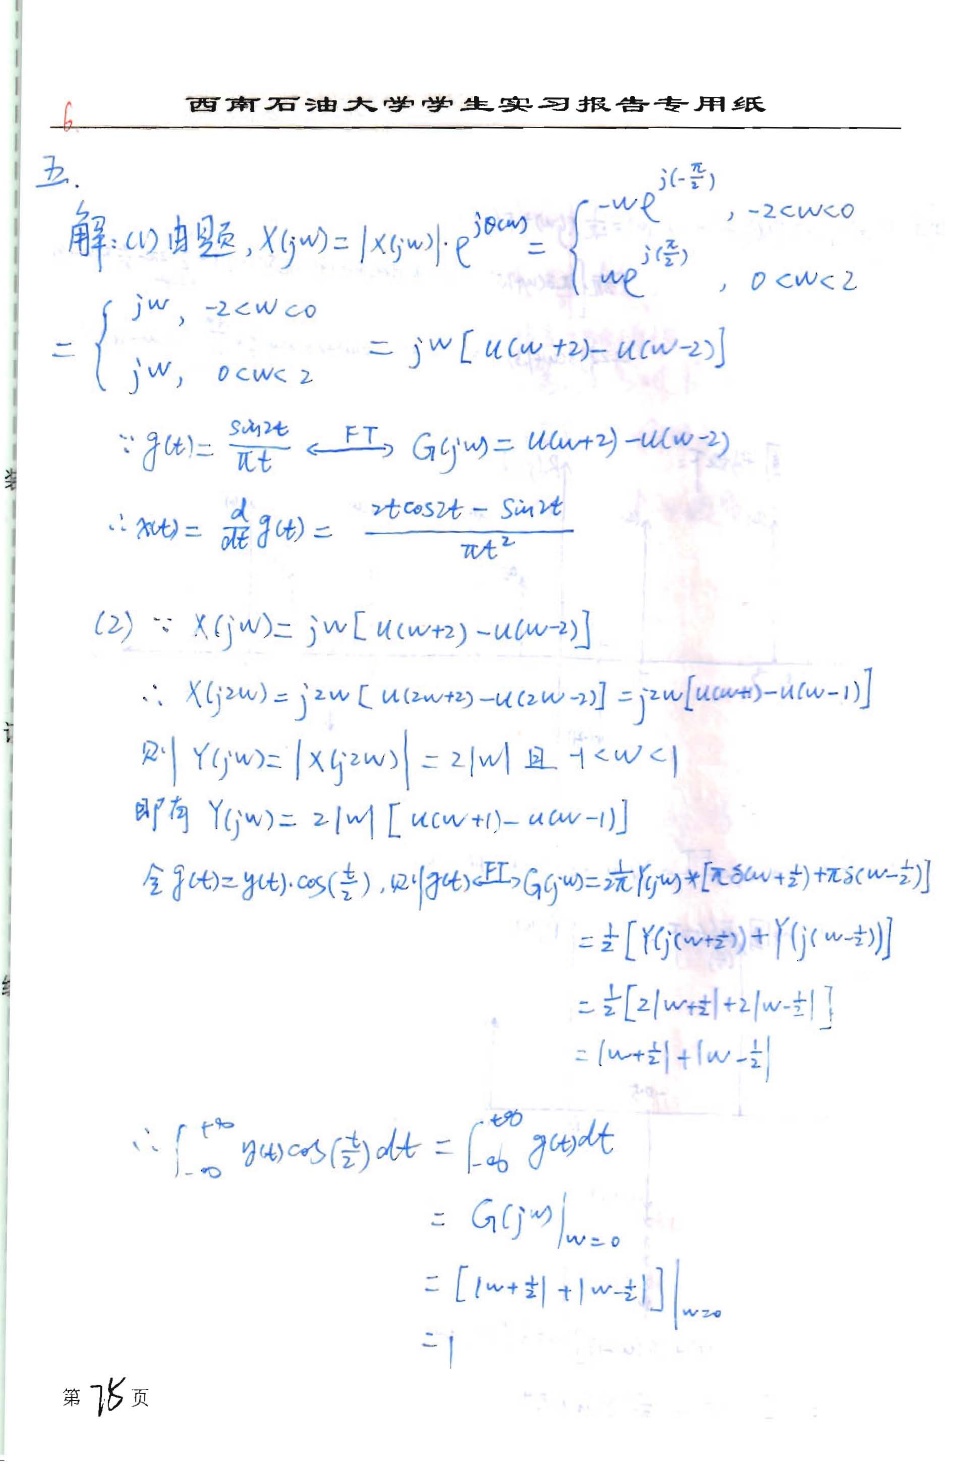 西南石油大学学生实习报告专用纸
6
五.
解:(1)由题, X(jw)=|X(jw)|·e^{jθ(w)} = { -we^{j(-π/2)}, -2<w<0
we^{j(π/2)}, 0<w<2
= { jw, -2<w<0
jw, 0<w<2 = jw[u(w+2)-u(w-2)]
∵ g(t)= sin2t/πt ←FT→ G(jw)= u(w+2)-u(w-2)
∴ x(t)= d/dt g(t) = (2tcos2t - sin2t)/πt²
(2) ∵ X(jw)= jw[u(w+2)-u(w-2)]
∴ X(j2w)=j2w[u(2w+2)-u(2w-2)]=j2w[u(w+1)-u(w-1)]
则 Y(jw)=|X(j2w)|=2|w| 且 -1<w<1
即有 Y(jw)= 2|w| [u(w+1)-u(w-1)]
令g(t)=y(t)·cos(t/2), 则g(t)←FT→G(jw)=1/2π Y(jw)*[πδ(w+1/2)+πδ(w-1/2)]
=1/2[Y(j(w+1/2))+Y(j(w-1/2))]
=1/2[2|w+1/2|+2|w-1/2|]
=|w+1/2|+|w-1/2|
∴ ∫_{-∞}^{+∞} y(t)cos(t/2)dt = ∫_{-∞}^{+∞} g(t)dt
= G(jw)|_{w=0}
= [|w+1/2|+|w-1/2|]|_{w=0}
=1
装
订
线
第 75 页